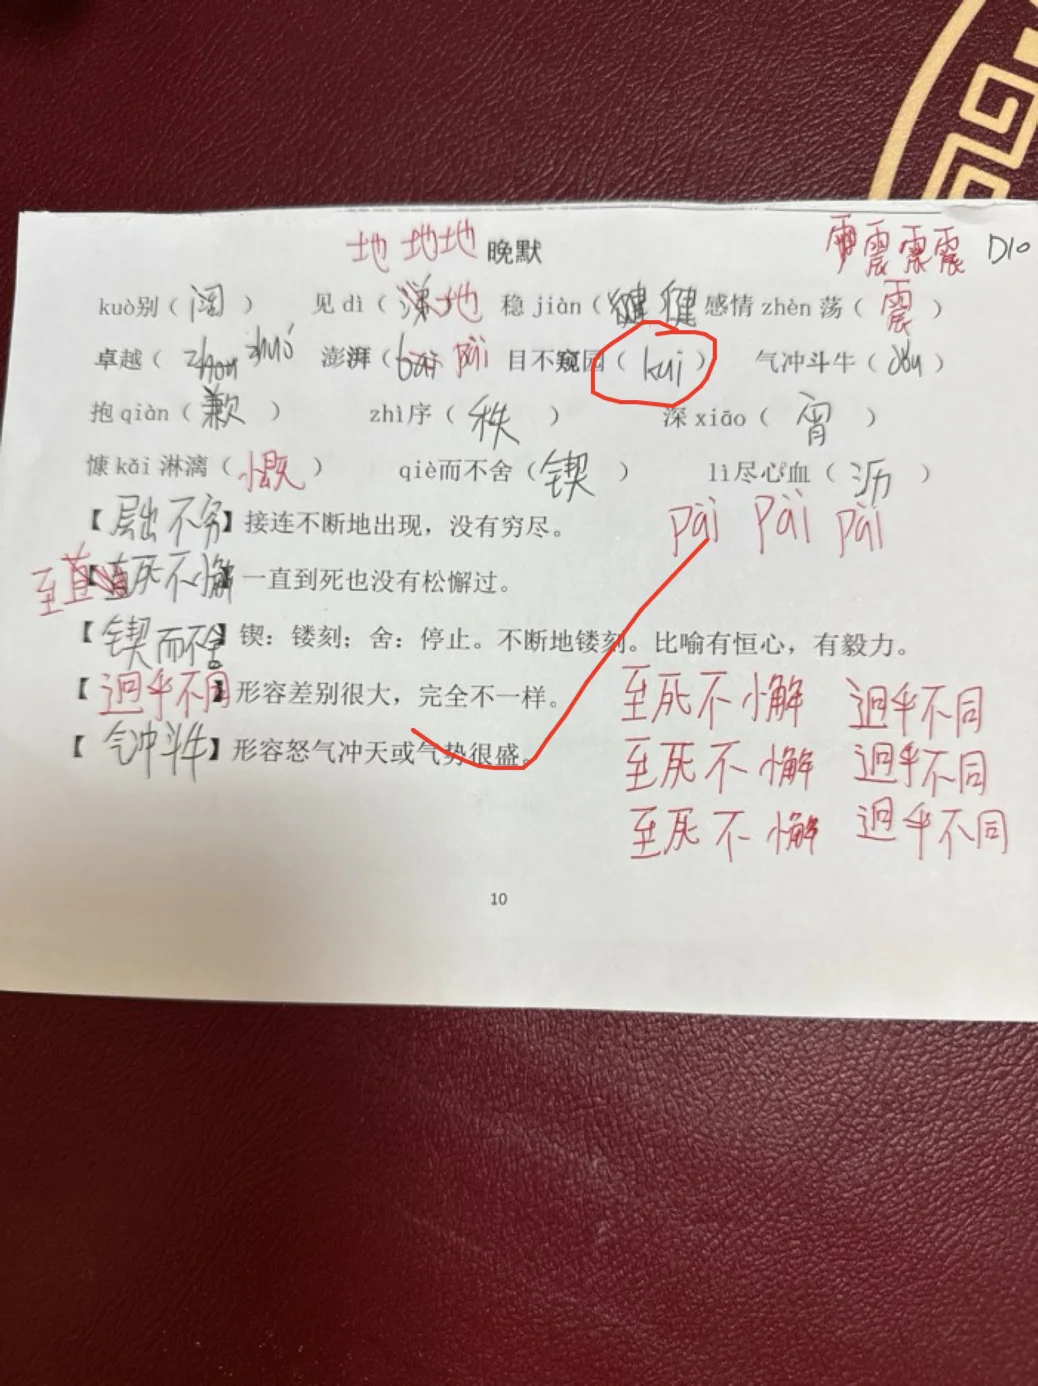 地 地 地 晚默 震 震 震 D10
kuò别（阔） 见dì（地） 稳jiàn（健 健） 感情zhèn荡（震）
卓越（zhou zhuó） 澎湃（bai pài） 目不窥园（kui） 气冲斗牛（dǒu）
抱qiàn（歉） zhì序（秩） 深xiāo（宵）
慷kǎi淋漓（慨） qiè而不舍（锲） lì尽心血（沥）
【层出不穷】接连不断地出现，没有穷尽。 pài pài pài
【至死不懈】一直到死也没有松懈过。
【锲而不舍】锲：镂刻；舍：停止。不断地镂刻。比喻有恒心，有毅力。
【迥乎不同】形容差别很大，完全不一样。 至死不懈 迥乎不同
【气冲斗牛】形容怒气冲天或气势很盛。 至死不懈 迥乎不同
至死不懈 迥乎不同
10